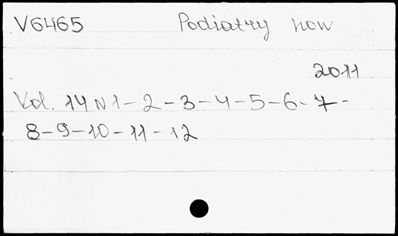 V6465 Podiatry now
2011
Vol. 14 N 1-2-3-4-5-6-7-
8-9-10-11-12